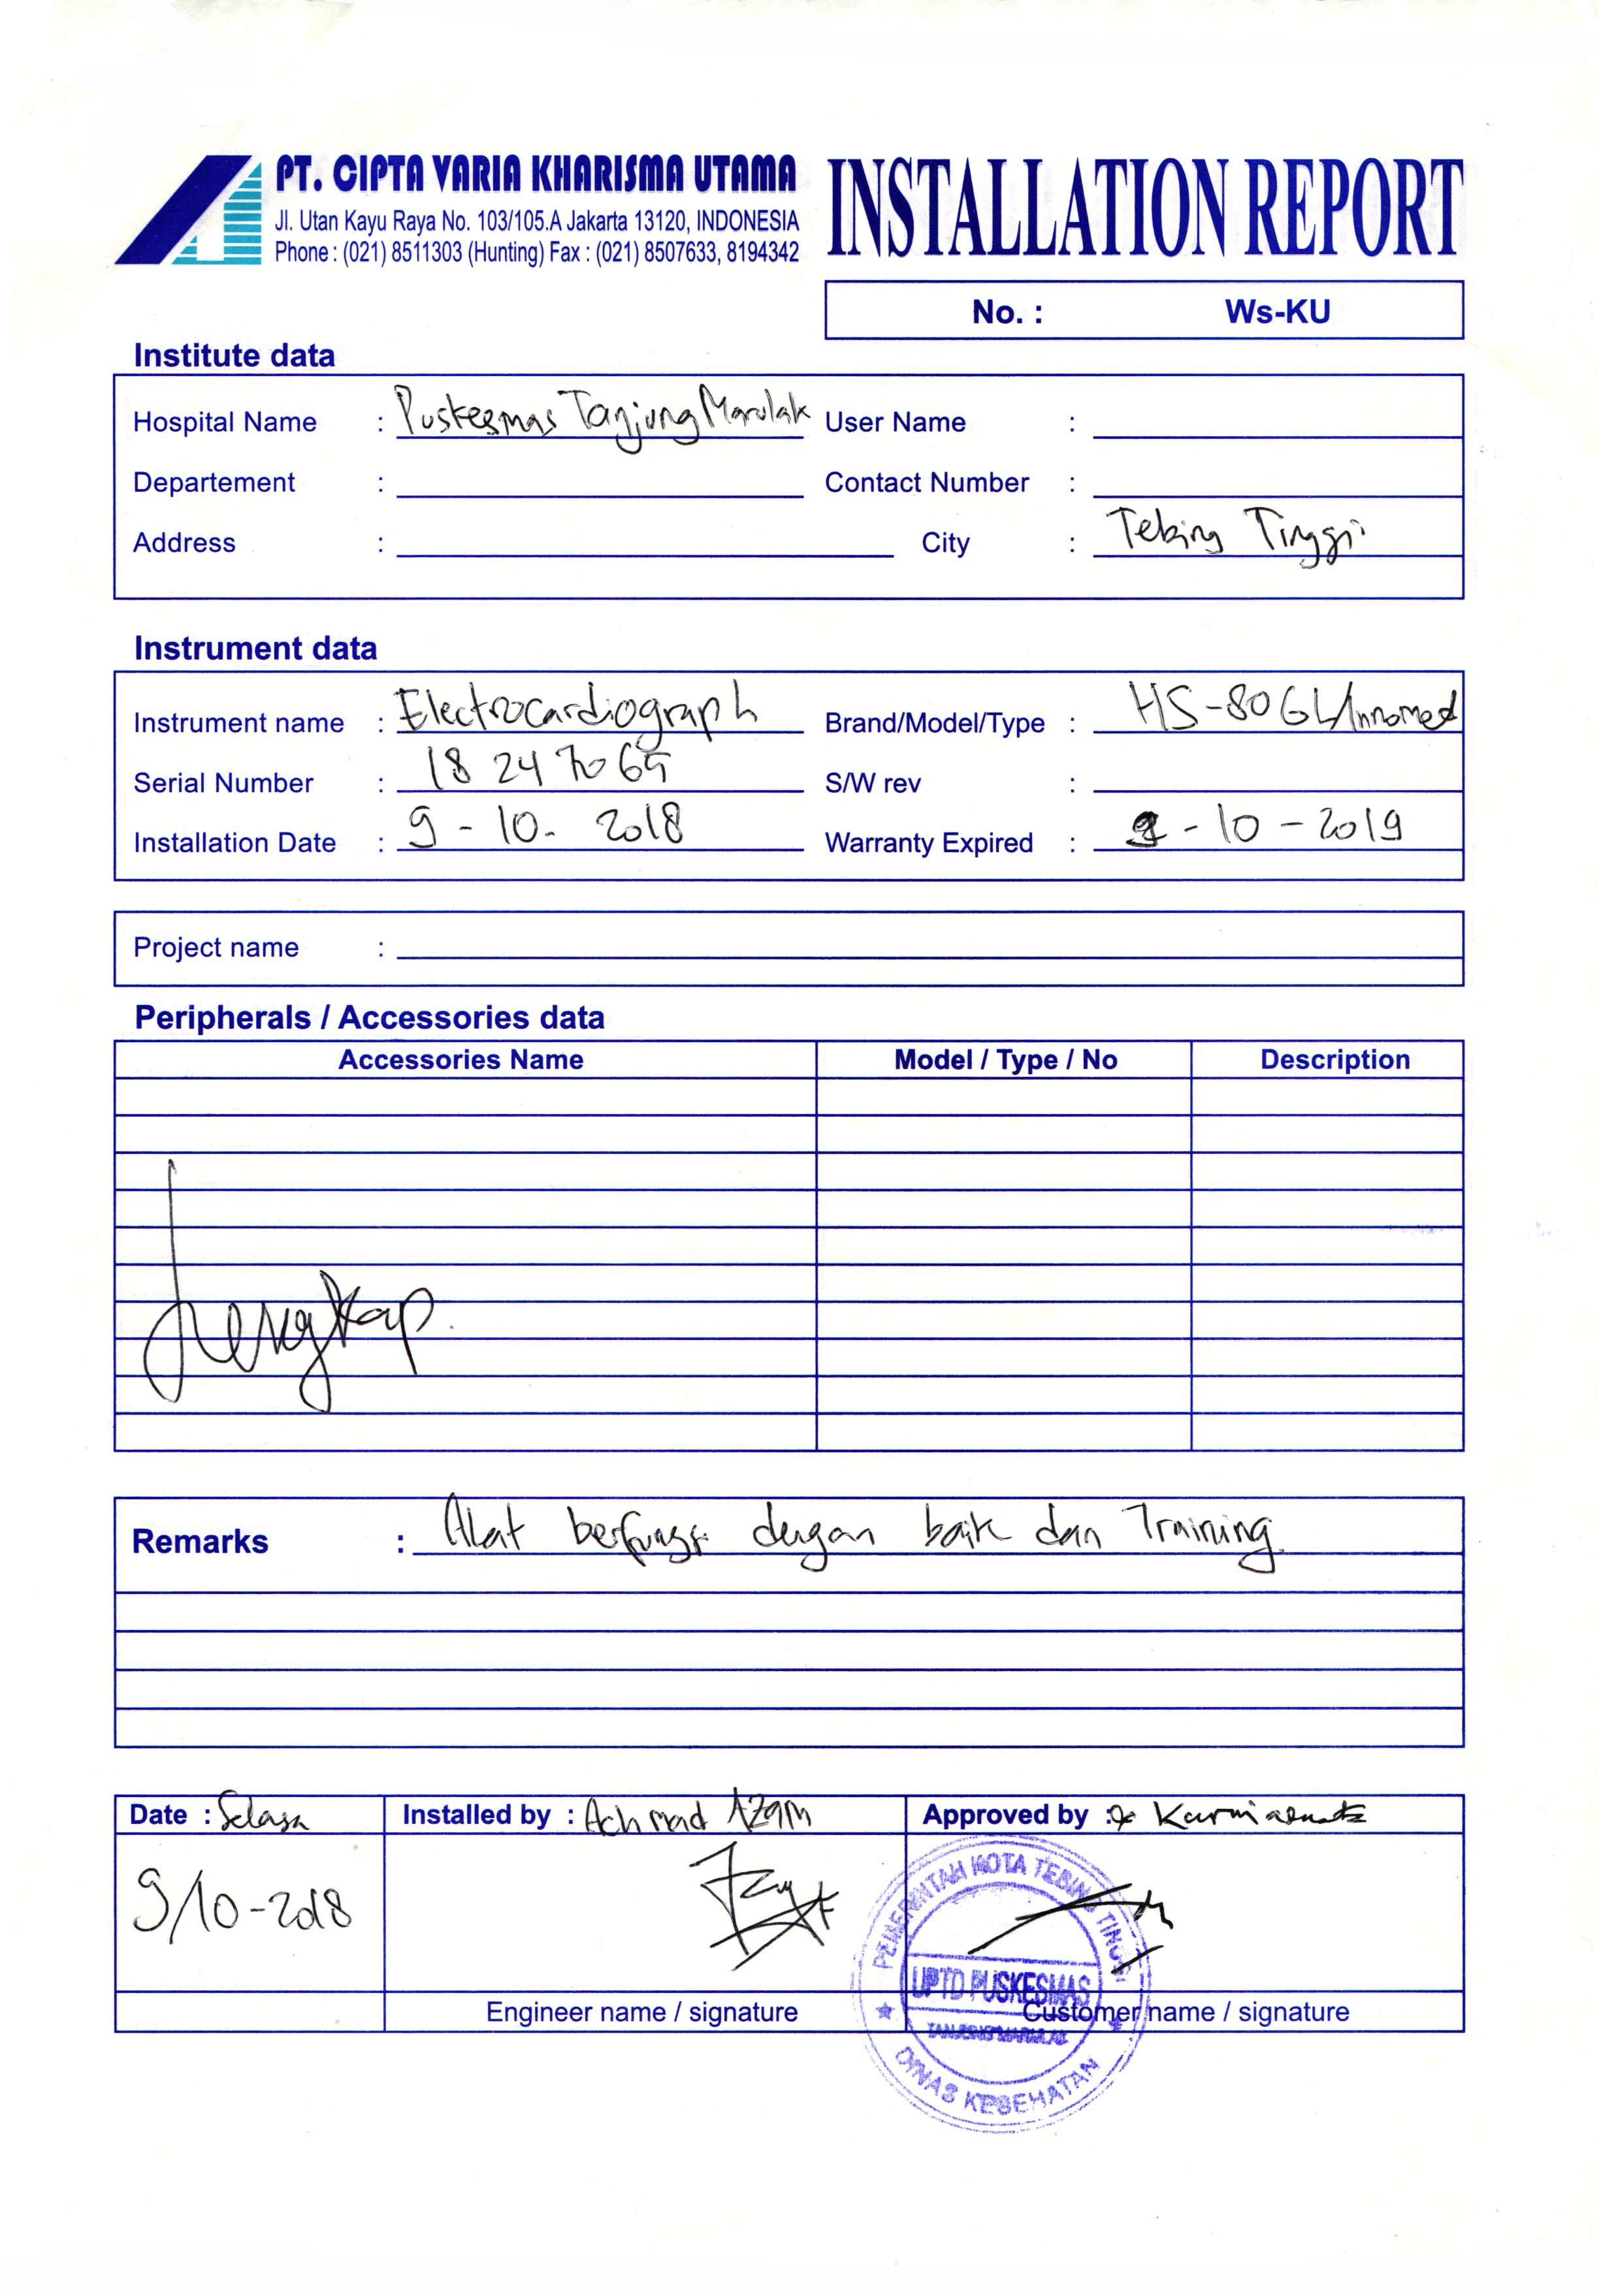 PT. CIPTA VARIA KHARISMA UTAMA
Jl. Utan Kayu Raya No. 103/105.A Jakarta 13120, INDONESIA
Phone : (021) 8511303 (Hunting) Fax : (021) 8507633, 8194342
INSTALLATION REPORT
No. : Ws-KU
Institute data
Hospital Name : Puskesmas Tanjung Marulak User Name :
Departement : Contact Number :
Address : City : Tebing Tinggi
Instrument data
Instrument name : Electrocardiograph Brand/Model/Type : HS-80GL/Innomed
Serial Number : 18 247065 S/W rev :
Installation Date : 9 - 10 - 2018 Warranty Expired : 9 - 10 - 2019
Project name :
Peripherals / Accessories data
Accessories Name Model / Type / No Description
Lengkap.
Remarks : Alat berfungsi dengan baik dan Training.
Date : Selasa Installed by : Achmad AZAM Approved by :
9/10-2018
PEMERINTAH KOTA TEBING TINGGI
UPTD PUSKESMAS
TANJUNG MARULAK
DINAS KESEHATAN
Engineer name / signature Customer name / signature